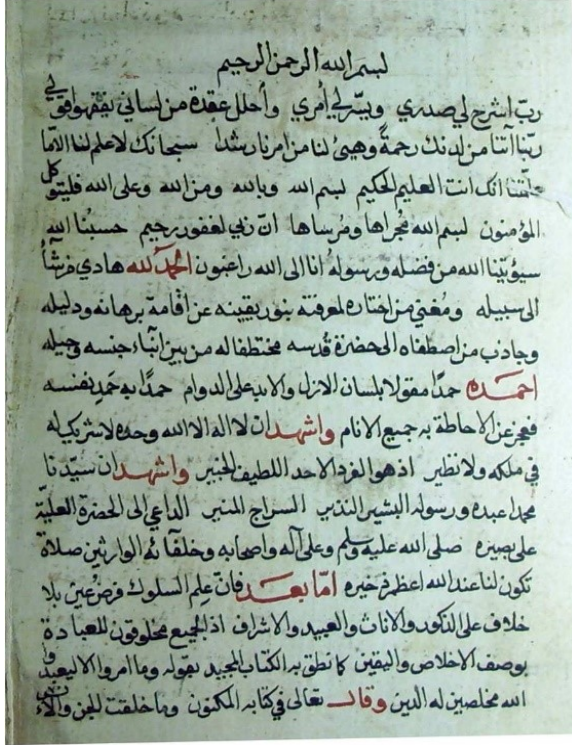 بسم الله الرحمن الرحيم
رب اشرح لي صدري ويسر لي أمري وأحلل عقدة من لساني يفقهوا قولي
ربنا آتنا من لدنك رحمةً وهيئ لنا من امرنا رشدا سبحانك لا علم لنا الا ما
علمتنا انك انت العليم الحكيم بسم الله وبالله ومن الله وعلى الله فليتوكل
المؤمنون بسم الله مجراها ومرساها ان ربي لغفور رحيم حسبنا الله
سيؤتينا الله من فضله ورسوله انا الى الله راغبون الحمد لله هادي من شاء
الى سبيله ومغني من اختاره لمعرفته بنور يقينه عن اقامة برهانه ودليله
وجاذب من اصطفاه الى حضرة قدسه مختطفا له من بين ابناء جنسه وجيله
احمده حمدًا مقولا بلسان الازل والابد على الدوام حمدًا به حمد بنفسه
فعجز عن الاحاطة به جميع الانام واشهد ان لا اله الا الله وحده لا شريك له
في ملكه ولا نظير اذ هو الفرد الاحد اللطيف الخبير واشهد ان سيدنا
محمدا عبده ورسوله البشير النذير السراج المنير الداعي الى الحضرة العلية
على بصيره صلى الله عليه وسلم وعلى آله واصحابه وخلفائه الوارثين صلاة
تكون لنا عند الله اعظم ذخيره اما بعد فان علم السلوك فرض عين بلا
خلاف على الذكور والاناث والعبيد والاشراف اذ الجميع مخلوقون للعبادة
بوصف الاخلاص واليقين كما نطق به الكتاب المجيد بقوله وما امروا الا ليعبدوا
الله مخلصين له الدين وقال تعالى في كتابه المكنون وما خلقت الجن والانس